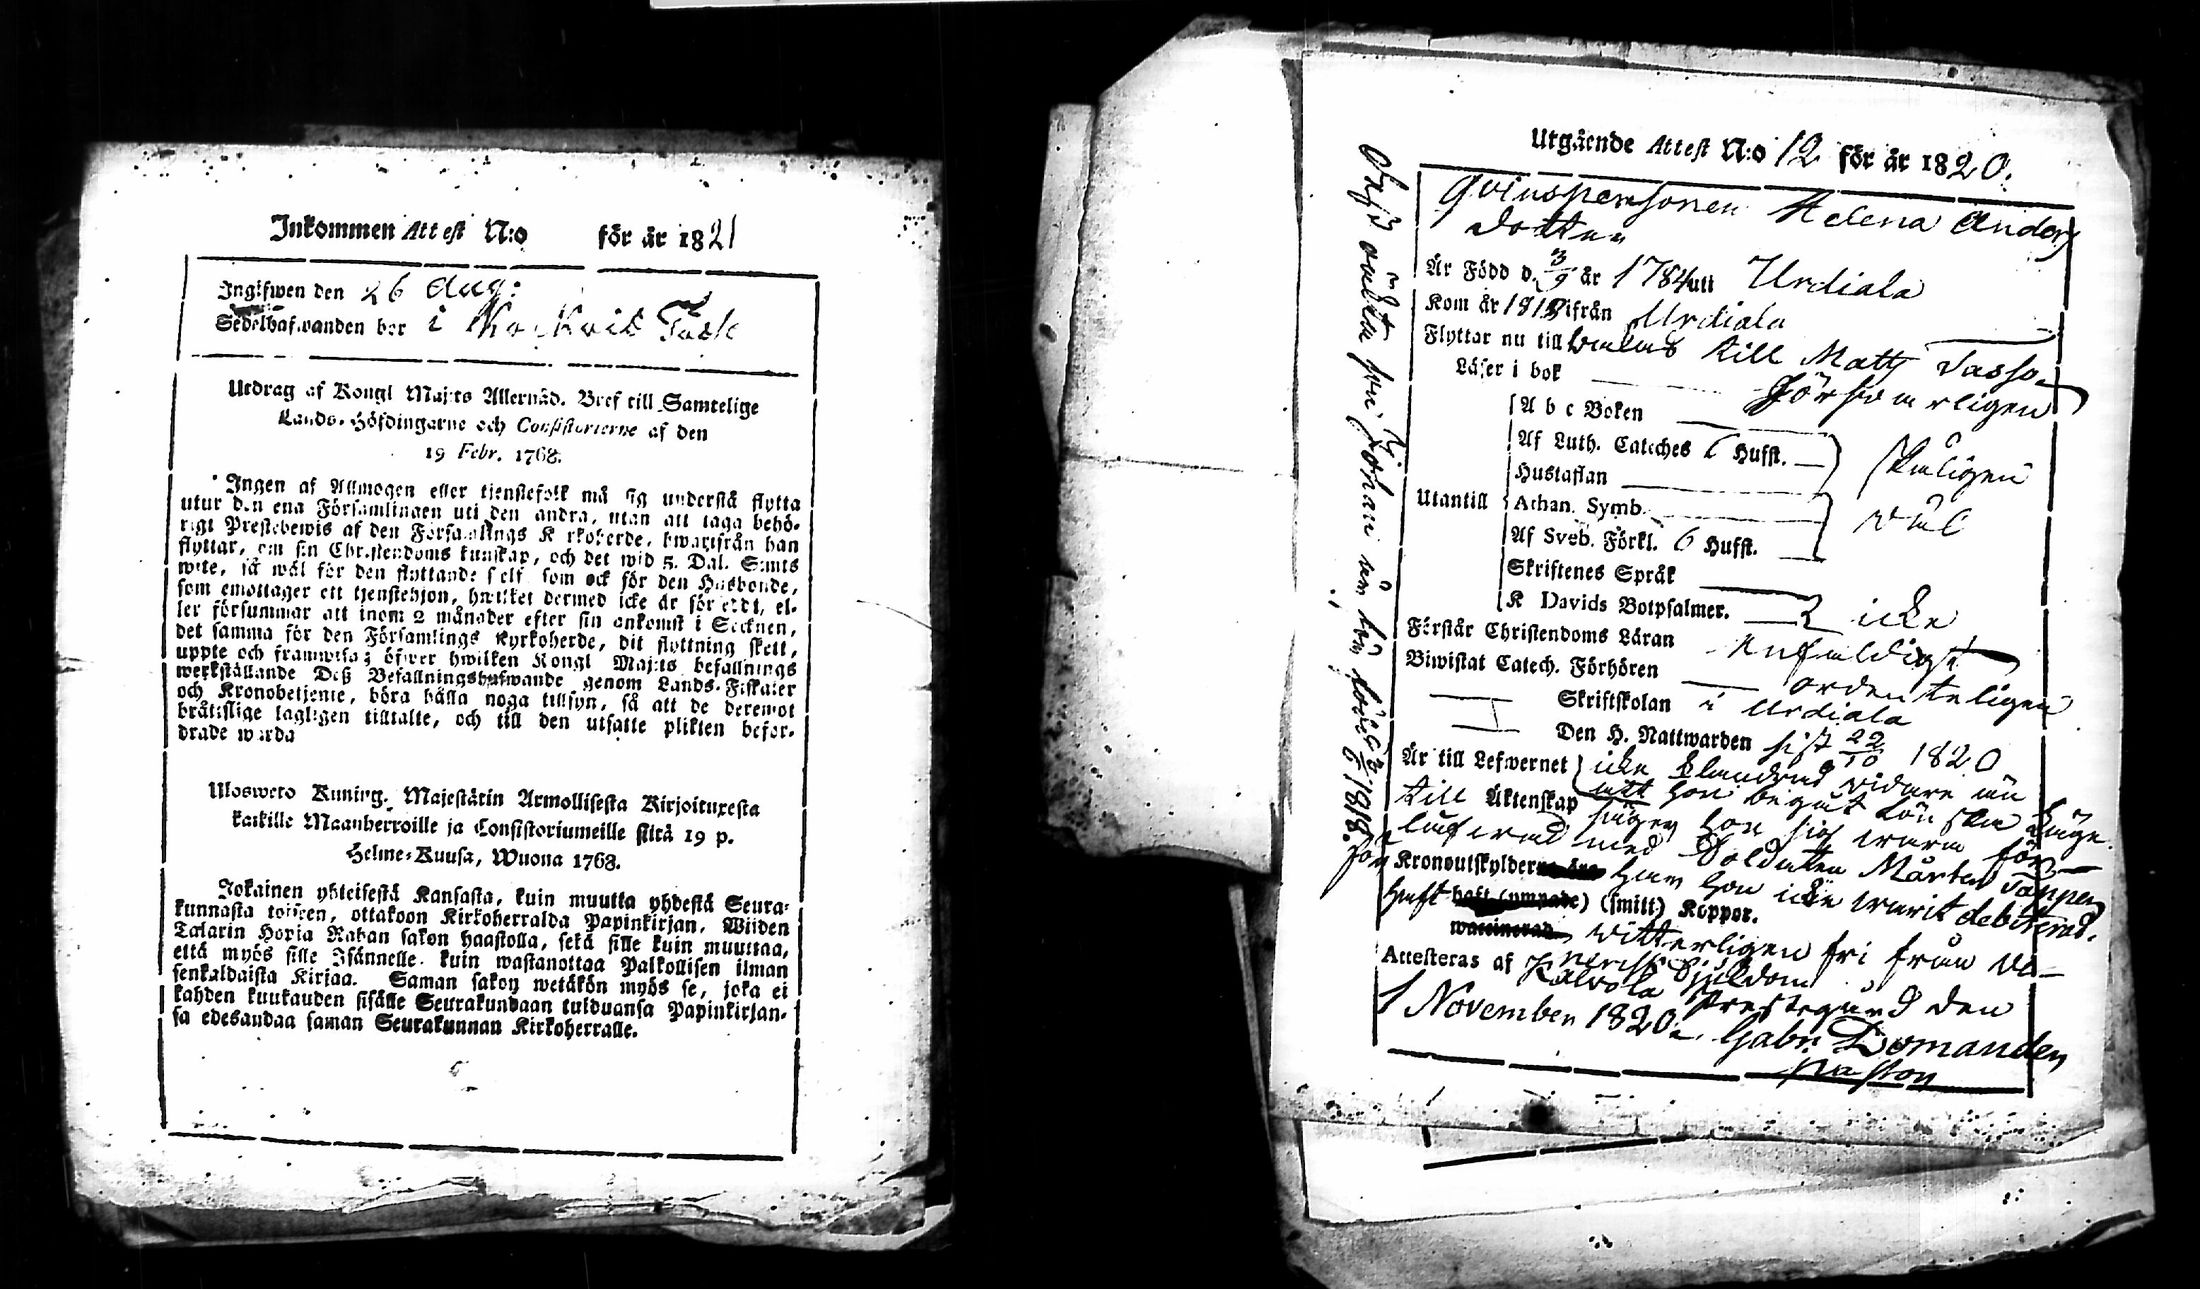 Inkommen Attest N:o för år 1821
Ingifwen den 26 Aug:
Sedelhafwanden bor i
Utdrag af Kongl Maj:ts Allernåd. Bref till Samtelige
Lands-Höfdingarne och Consistorierne af den
19 Febr. 1768.
Ingen af Allmogen eller tjenstefolk må sig understå flytta
utur den ena Församlingen uti den andra, utan att taga behö-
rigt Prestebewis af den Församlings Kyrkoherde, hwarifrån han
flyttar, om sin Christendoms kunskap, och det wid 5. Dal. S:mts
wite, så wäl för den flyttande self som ock för den Husbonde,
som emottager ett tjenstehjon, hwilket dermed icke är försedt, el-
ler försummar att inom 2 månader efter sin ankomst i Socknen,
det samma för den Församlings Kyrkoherde, dit flyttning skett,
uppte och framwisa; öfwer hwilken Kongl Maj:ts befallnings
werkställande Deß Befallningshafwande genom Lands-Fiskaler
och Kronobetjente, böra hålla noga tillsyn, så att de deremot
bråttslige lagligen tilltalte, och till den utsatte plikten befor-
drade warda
Uloswero Kuning. Majestätin Armollisesta Kirjoituxesta
kaikille Maanherroille ja Consistoriumeille siitä 19 p.
Helme-Kuusa, Wuona 1768.
Jokainen yhteisestä Kansasta, kuin muutta yhdestä Seura-
kunnasta toiseen, ottakoon Kirkoherralda Papinkirjan, Wiiden
Talarin Hopia Rahan sakon haastolla, sekä sille kuin muuttaa,
että myös sille Isännelle kuin wastanottaa Palkollisen ilman
senkaldaista Kirjaa. Saman sakon wetäkön myös se, joka ei
kahden kuukauden sisälle Seurakundaan tulduansa Papinkirjan-
sa edesandaa saman Seurakunnan Kirkoherralle.
Utgående Attest N:o 12 för år 1820.
Qvinspersonen Helena Anders
dotter
Är Född d. 3/9 år 1784 uti Urdiala
Kom år 1818 ifrån Urdiala
Flyttar nu till till Matts
Läser i bok försvarligen
A b c Boken
Af Luth. Cateches 6 Hufst. skeligen
Hustaflan
Utantill Athan. Symb. väl
Af Sveb. Förkl. 6 Hufst.
Skriftenes Språk
K Davids Botpsalmer. icke
Förstår Christendoms Läran enfaldigt
Biwistat Catech. Förhören ordenteligen
Skriftskolan i Urdiala
Den H. Nattwarden sist 22/10 1820
Är till Lefwernet icke klandrad vidare än
att hon begått
till Äktenskap säger hon sig wara för-
lofwad med Soldaten Mårten
för Kronoutskylder har hon icke warit debiterad.
haft haft (ympade) (smitt) Koppor.
waccinerad vitterligen fri från ve-
nerisk Sjukdom
Attesteras af Kalvola Prestegård den
1 November 1820. Gabr:
Pastor
Johan är 1818.